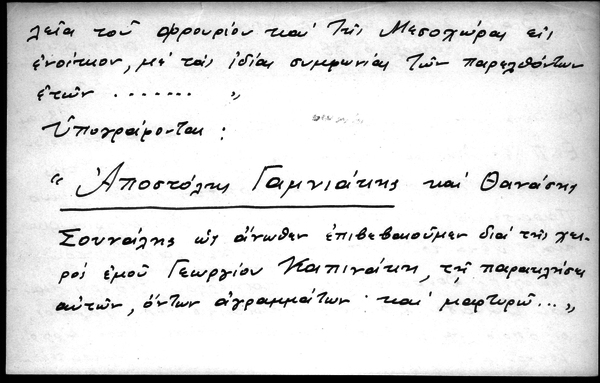 λεῖα τοῦ φρουρίου καί τῆς Μεσοχώρας εἰς
ἐνοίκιον, μέ τάς ἰδίας συμφωνίας τῶν παρελθόντων
ἐτῶν ....... "
Ὑπογράφονται :
" Ἀποστόλης Γαμνιάκης καί Θανάσης
Σουνάλης ὡς ἄνωθεν ἐπιβεβαιοῦμεν διά τῆς χει-
ρός ἐμοῦ Γεωργίου Καπινάκη, τῇ παρακλήσει
αὐτῶν, ὄντων ἀγραμμάτων καί μαρτυρῶ... "